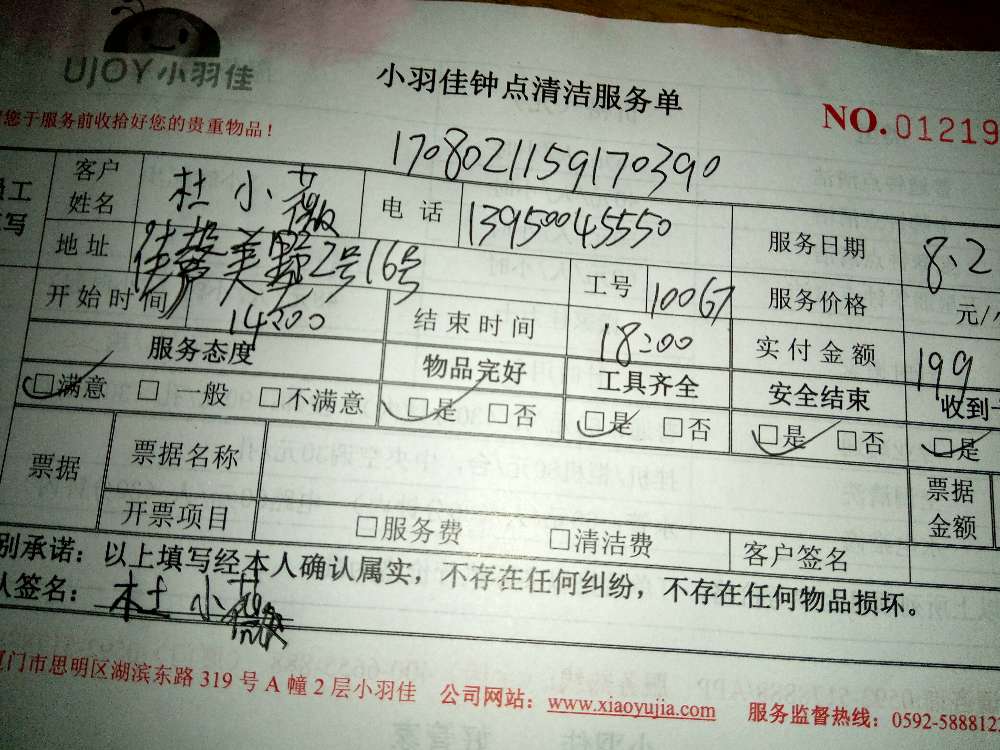 UJOY小羽佳
小羽佳钟点清洁服务单
您于服务前收拾好您的贵重物品！
NO.01219
1708021159170390
客户姓名 杜小薇 电话 13950045550 服务日期 8.2
地址 美 2号16号 工号 10067 服务价格 元/
开始时间 14:00 结束时间 18:00 实付金额 199
服务态度 物品完好 工具齐全 安全结束 收到
□满意 □一般 □不满意 □是 □否 □是 □否 □是 □否 □是
票据 票据名称 票据金额
开票项目 □服务费 □清洁费 客户签名
别承诺：以上填写经本人确认属实，不存在任何纠纷，不存在任何物品损坏。
签名：杜小薇
门市思明区湖滨东路 319 号 A 幢 2 层小羽佳 公司网站：www.xiaoyujia.com 服务监督热线：0592-5888122